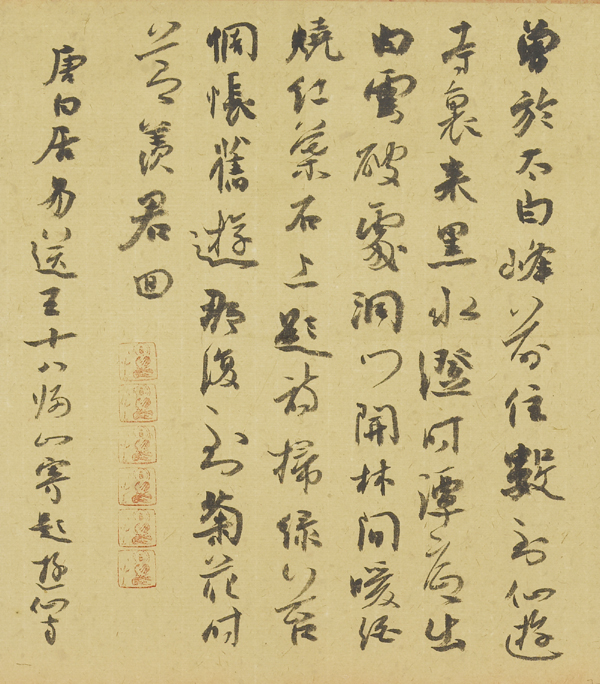 曾於太白峰前住數到仙遊
寺裏来黑水澄时潭底出
白雲破處洞门開林间暖酒
燒红葉石上題诗掃绿苔
惆悵舊遊那復到菊花时
節羨君回
唐白居易送王十八归山寄题遊仙寺